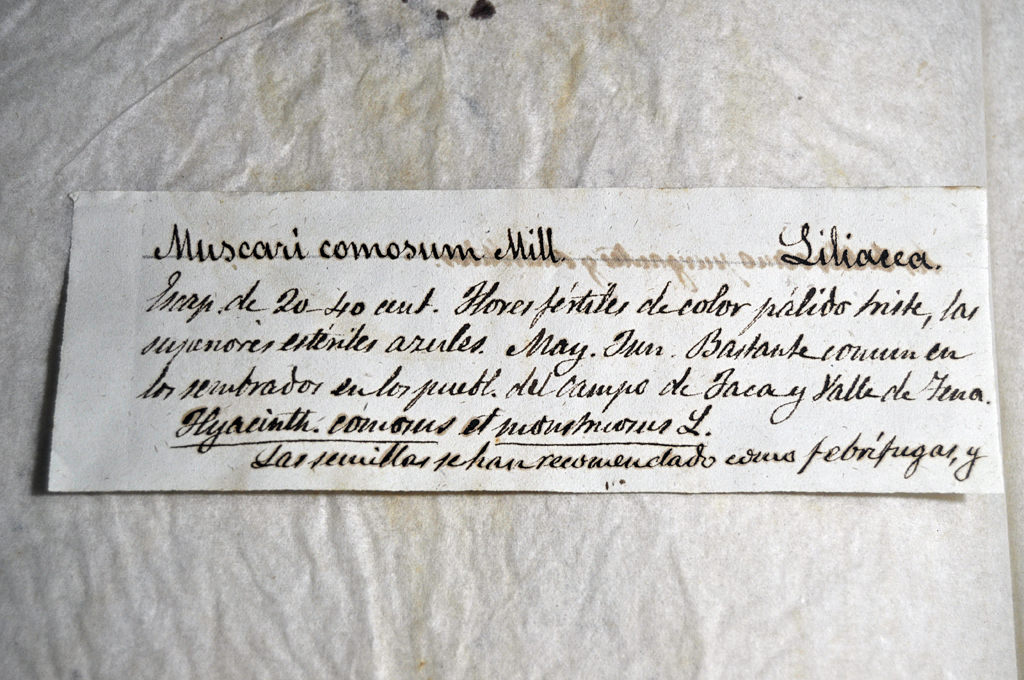 Muscari comosum Mill. Liliacea.
Escap. de 20-40 cent. Flores fértiles de color pálido triste, las
superiores estériles azules. May. Jun. Bastante comun en
los sembrados en los puebl. del Campo de Jaca y Valle de Tena.
Hyacinth. comosus et monstruosus L.
Las semillas se han recomendado como febrífugas, y